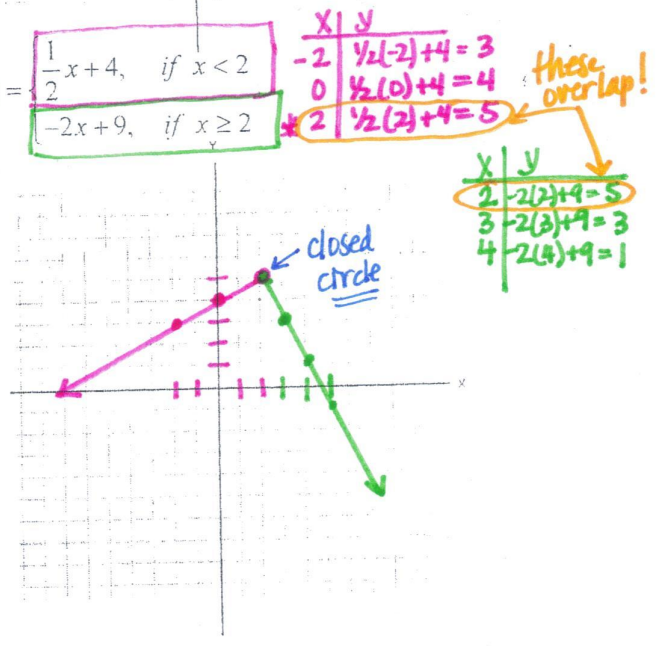 = { 1/2 x + 4, if x < 2
−2x + 9, if x ≥ 2
x | y
-2 | 1/2(-2)+4 = 3
0 | 1/2(0)+4 = 4
* 2 | 1/2(2)+4 = 5
these
overlap!
x | y
2 | -2(2)+9 = 5
3 | -2(3)+9 = 3
4 | -2(4)+9 = 1
closed
circle
y
x